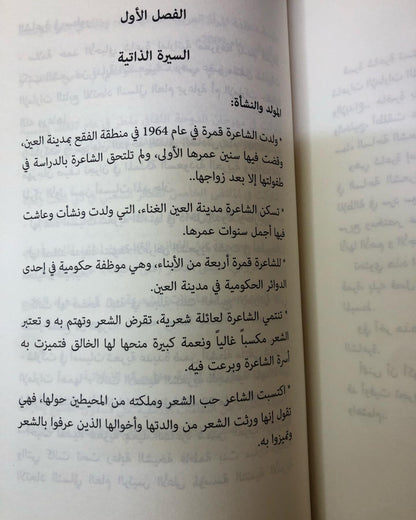 الفصل الأول
السيرة الذاتية
المولد والنشأة:
* ولدت الشاعرة قمرة في عام 1964 في منطقة الفقع بمدينة العين،
وقضت فيها سنين عمرها الأولى، ولم تلتحق الشاعرة بالدراسة في
طفولتها إلا بعد زواجها..
* تسكن الشاعرة مدينة العين الغناء، التي ولدت ونشأت وعاشت
فيها أجمل سنوات عمرها.
* للشاعرة قمرة أربعة من الأبناء، وهي موظفة حكومية في إحدى
الدوائر الحكومية في مدينة العين.
* تنتمي الشاعرة لعائلة شعرية، تقرض الشعر وتهتم به و تعتبر
الشعر مكسباً غالياً ونعمة كبيرة منحها لها الخالق فتميزت به
أسرة الشاعرة وبرعت فيه.
* اكتسبت الشاعرة حب الشعر وملكته من المحيطين حولها، فهي
تقول إنها ورثت الشعر من والدتها وأخوالها الذين عرفوا بالشعر
وتميزوا به.